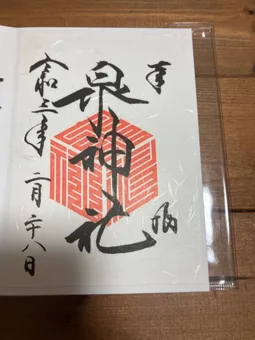 奉
拝
泉神社
令和三年
二月二十八日